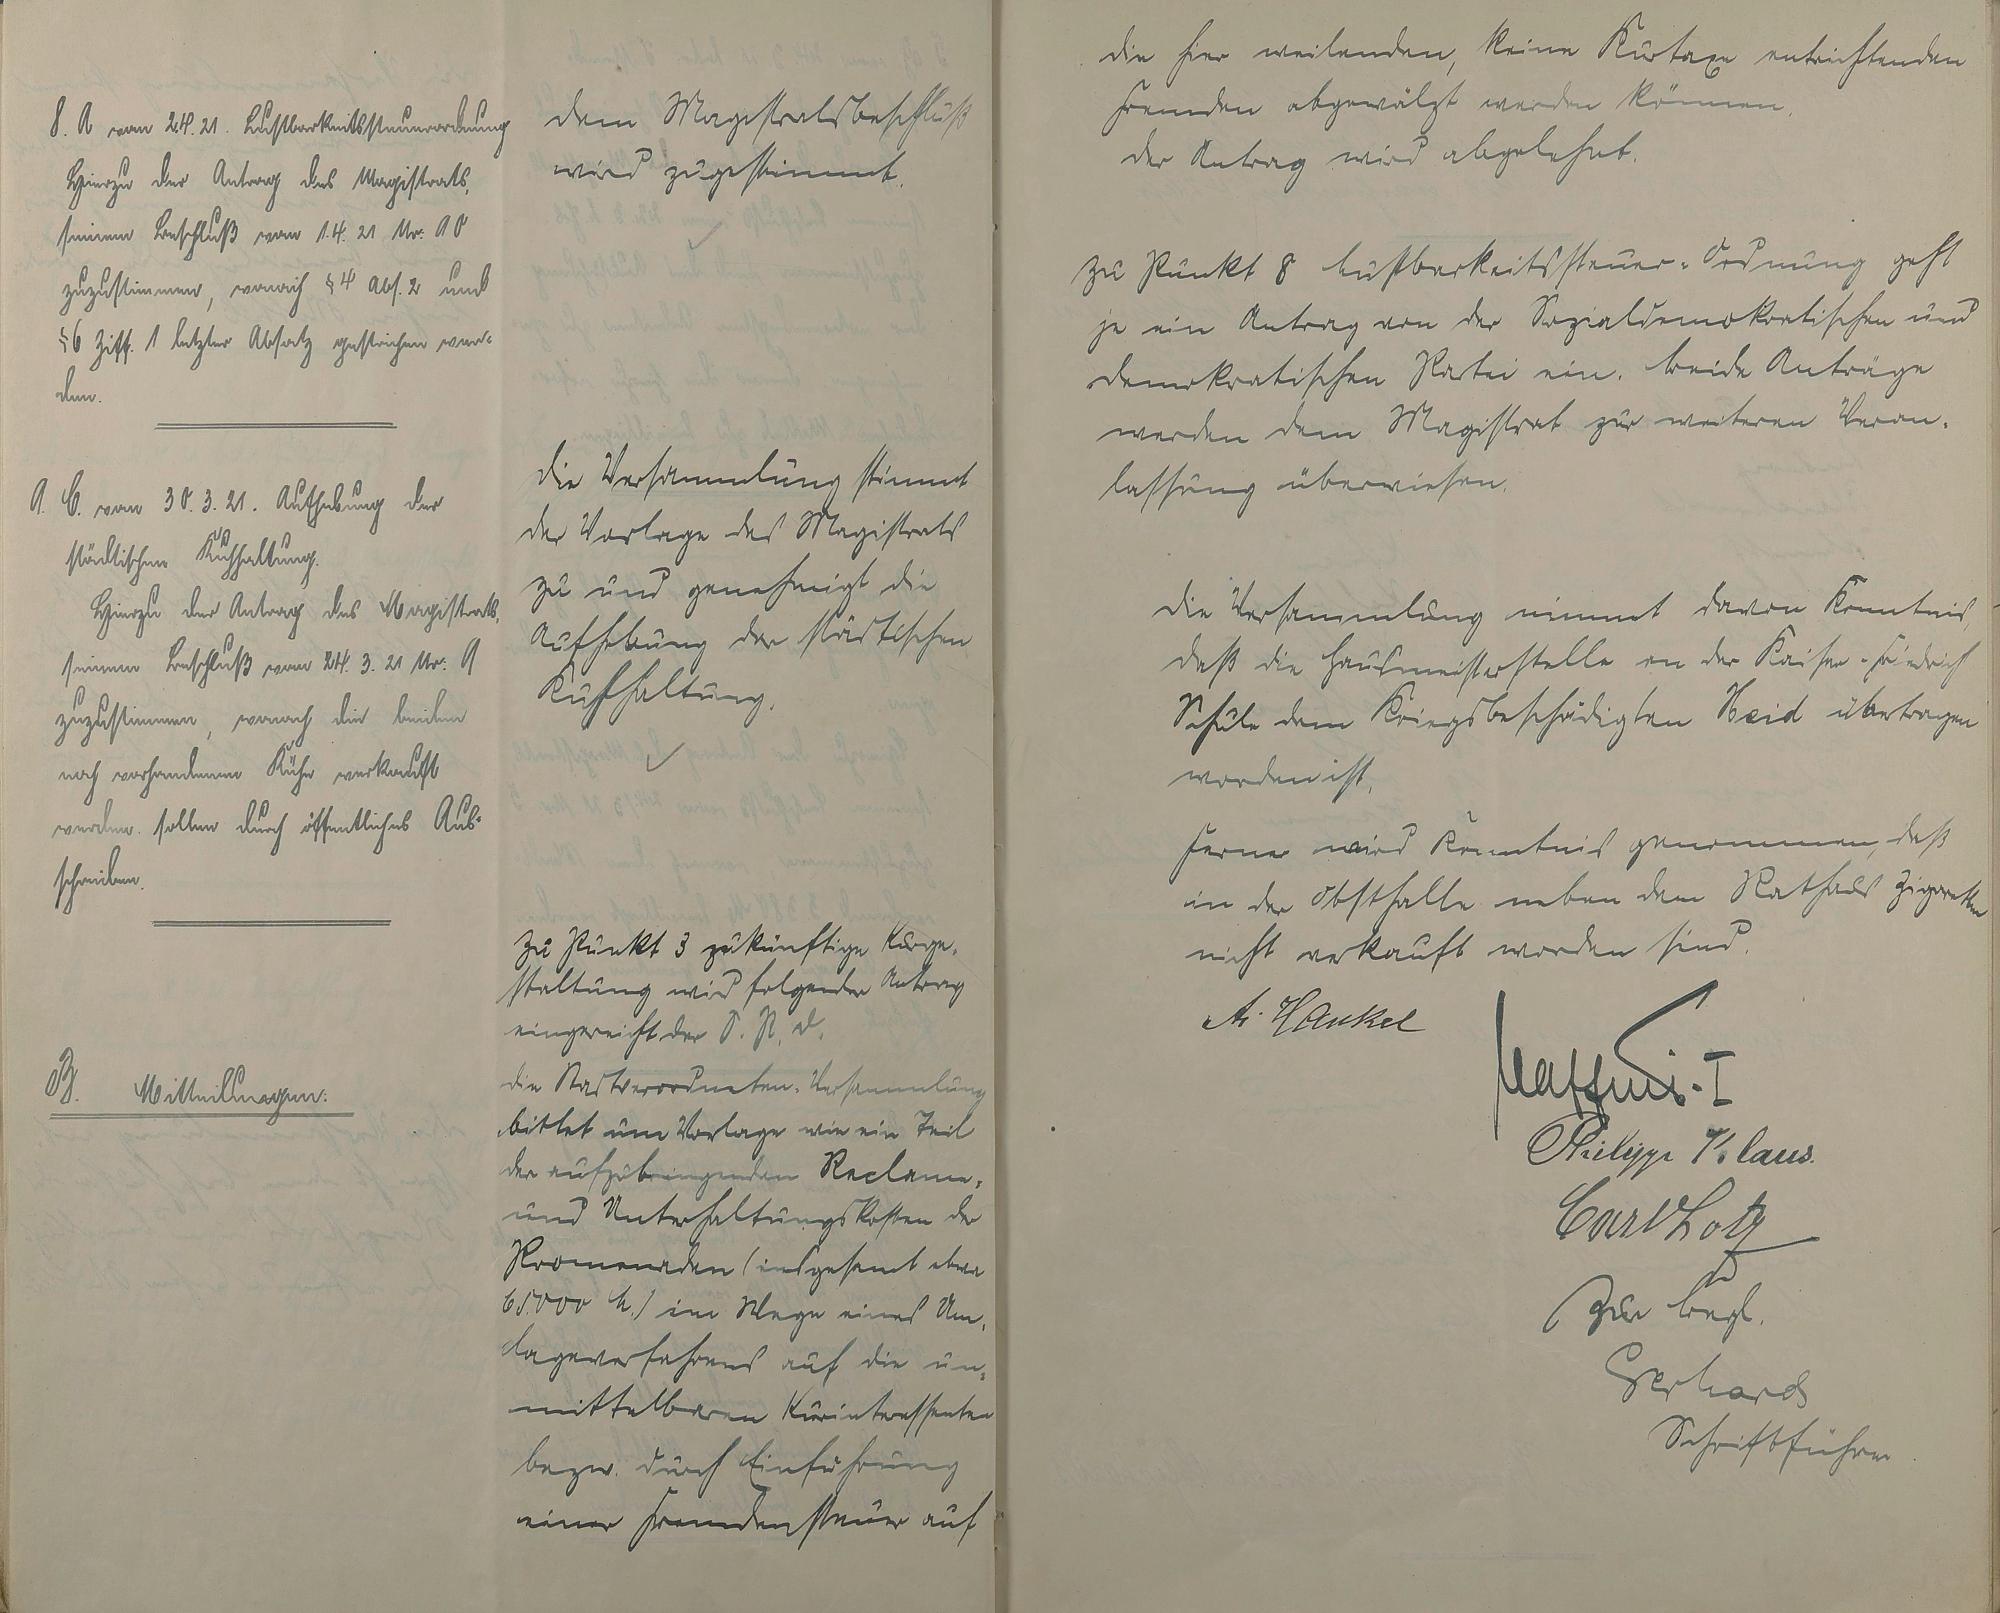 8. A vom 2.4.21. Lustbarkeitssteuerordnung
Hierzu der Antrag des Magistrats,
seinem Beschluß vom 1.4.21 Nr: 10
zuzustimmen, wonach § 4 Abs. 2 und
§ 6 Ziff. 1 letzter Absatz gestrichen wer-
den.
dem Magistratsbeschluß
wird zugestimmt.
9. C. vom 30.3.21. Aufhebung der
städtischen Kuhhaltung.
Hierzu der Antrag des Magistrats,
seinem Beschluß vom 24.3.21 Nr: 9
zuzustimmen, wonach die beiden
noch vorhandenen Kühe verkauft
werden sollen durch öffentliches Aus-
schreiben.
die Versammlung stimmt
der Vorlage des Magistrats
zu und genehmigt die
Aufhebung der städtischen
Kuhhaltung.
B. Mitteilungen:
Zu Punkt 3 zukünftige Kurge-
staltung wird folgender Antrag
eingereicht der S. P. D.
die Stadtverordneten-Versammlung
bittet um Vorlage wie ein Teil
der aufzubringenden Reclame-
und Unterhaltungskosten der
Promenaden (insgesamt etwa
65000 M.) im Wege eines Um-
lageverfahrens auf die un-
mittelbaren Kurinteressenten
bezw. durch Einführung
einer Fremdensteuer auf
die hier weilenden, keine Kurtaxe entrichtenden
Fremden abgewälzt werden können.
der Antrag wird abgelehnt.
Zu Punkt 8 Lustbarkeitssteuer-Ordnung geht
je ein Antrag von der Sozialdemokratischen und
demokratischen Partei ein. beide Anträge
werden dem Magistrat zur weiteren Veran-
lassung überwiesen.
die Versammlung nimmt davon Kenntnis,
daß die Hausmeisterstelle an der Kaiser-Friedrich
Schule dem Kriegsbeschädigten Heid übertragen
worden ist.
Ferner wird Kenntnis genommen, daß
in der Obsthalle neben dem Rathaus Zigaretten
nicht verkauft worden sind.
A. Hankel
Philipp Klaus.
Carl Lotz
Zur Begl.
Gerhards
Schriftführer